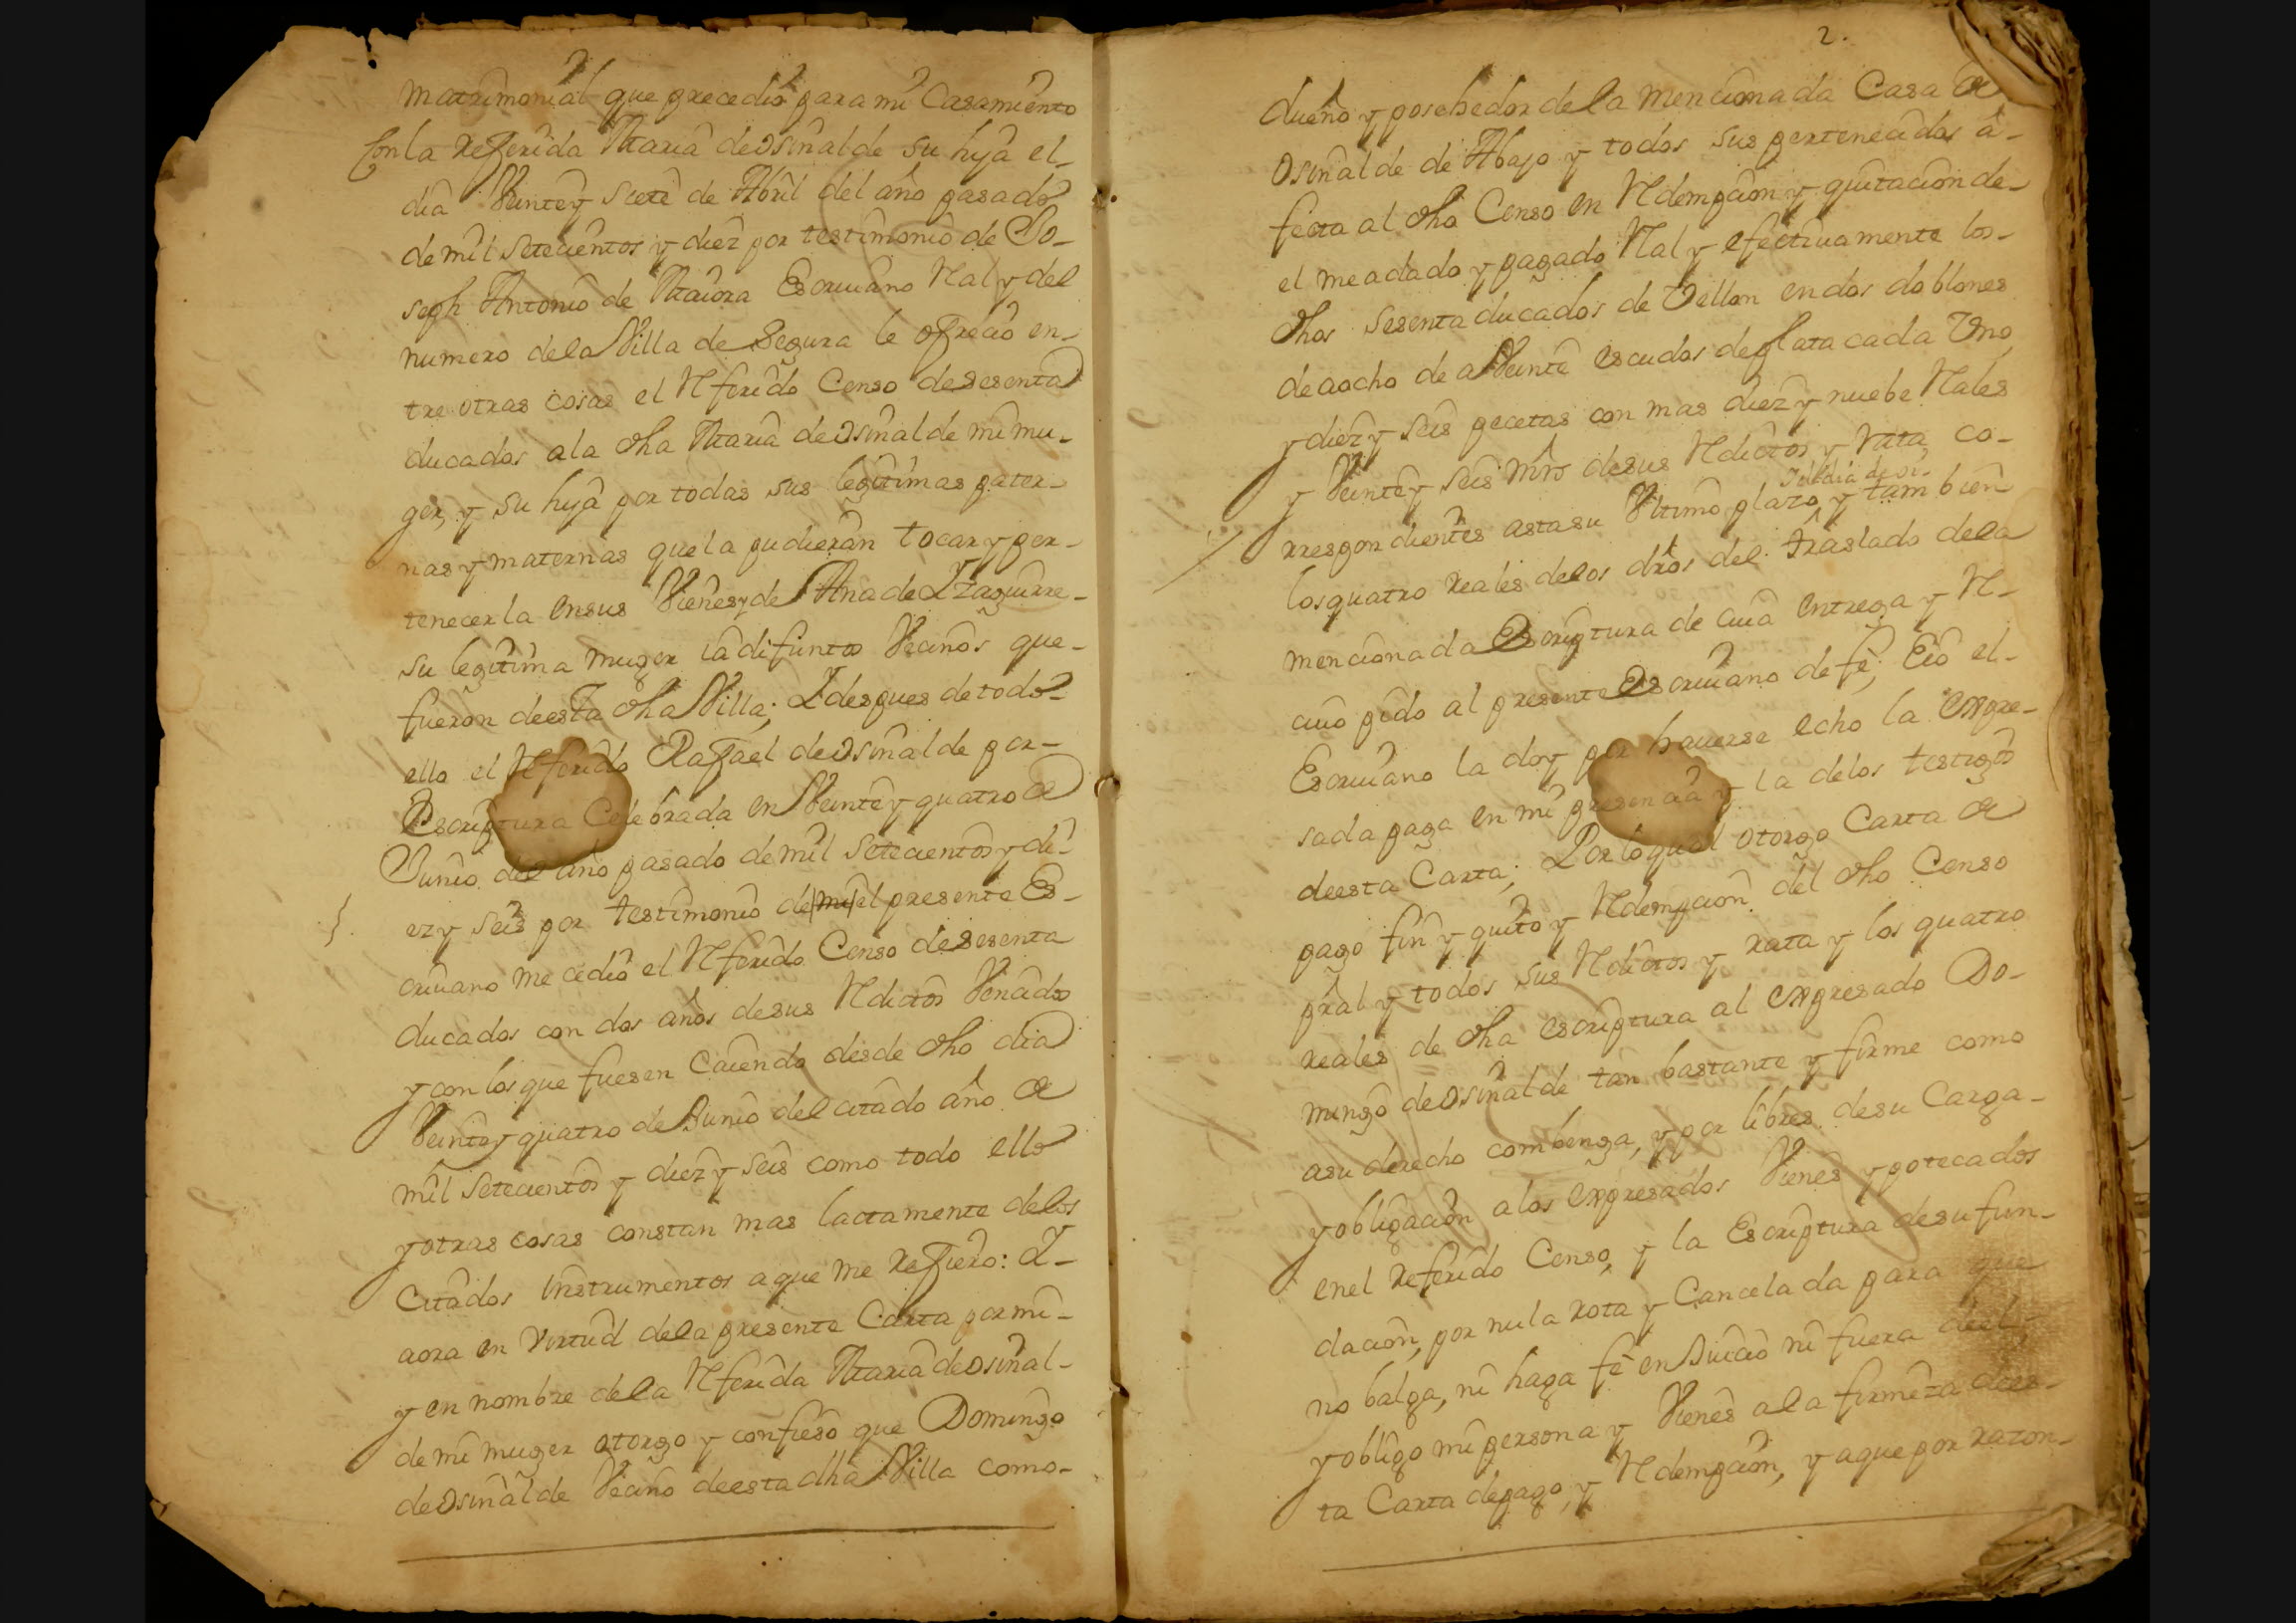 matrimonial que precedio para mi Casamiento
Con la referida Maria de Osinalde su hija el
dia Veinte y siete de Abril del año pasado
de mil setecientos y diez por testimonio de Jo-
seph Antonio de Maiora Escriuano Ral y del
numero dela Villa de Segura le ofrecio en-
tre otras cosas el Rferido Censo de sesenta
ducados ala dha Maria de Osinalde mi mu-
ger, y su hija por todas sus legitimas pater-
nas y maternas quela pudieran tocar y per-
tenecerla en sus Vienes y de Ana de Yzaguirre
su legitima muger ia difuntos Vecinos que
fueron de esta dha Villa; Y despues de todo
ello el Rferido Rafael de Osinalde por
Escriptura Celebrada en Veinte y quatro de
Junio del año pasado de mil setecientos y di-
ez y seis por testimonio de mi el presente Es-
criuano me cedio el Rferido Censo de sesenta
ducados con dos años de sus Rditos Vencidos
y con los que fuesen Caiendo desde dho dia
Veinte y quatro de Junio del citado año de
mil setecientos y diez y seis como todo ello
y otras cosas constan mas lactamente delos
Citados Instrumentos aque me refiero: Y
aora en virtud dela presente Carta por mi
y en nombre dela Rferida Maria de Osinal-
de mi muger otorgo y confieso que Domingo
de Osinalde Vecino de esta dha Villa como
2.
dueño y posehedor dela mencionada Casa de
Osinalde de Abajo y todos sus pertenecidos a-
fecta al dho Censo en Rdempcion y quitacion de
el me a dado y pagado Ral y efectiuamente los
dhos sesenta ducados de Vellon en dos doblones
de a ocho de a Veinte escudos de plata cada Vno
y diez y seis pecetas con mas diez y nuebe Rales
y Veinte y seis mrs de sus Rditos y rata, co-
rrespondientes asta su Vltimo plazo, y tambien
los quatro reales delos dros del traslado dela
mencionada Escriptura de cuia entrega y R-
ciuo pido al presente Escriuano de fe; Eio el
Escriuano la doy por hauerse echo la expre-
sada paga en mi presencia y la delos testigos
de esta Carta; Por lo qual otorgo Carta de
pago fin y quito y Rdempcion del dho Censo
pral y todos sus Rditos y rata y los quatro
reales de dha escriptura al expresado Do-
mingo de Osinalde tan bastante y firme como
asu derecho combenga, y por libres de su Carga
y obligacion alos expresados Vienes ypotecados
enel referido Censo, y la Escriptura de su fun-
dacion, por nula rota y Cancelada para que
no balga, ni haga fe en Juicio ni fuera de el
y obligo mi persona y Vienes ala firmeza de es-
ta Carta de pago, y Rdempcion, y aque por razon